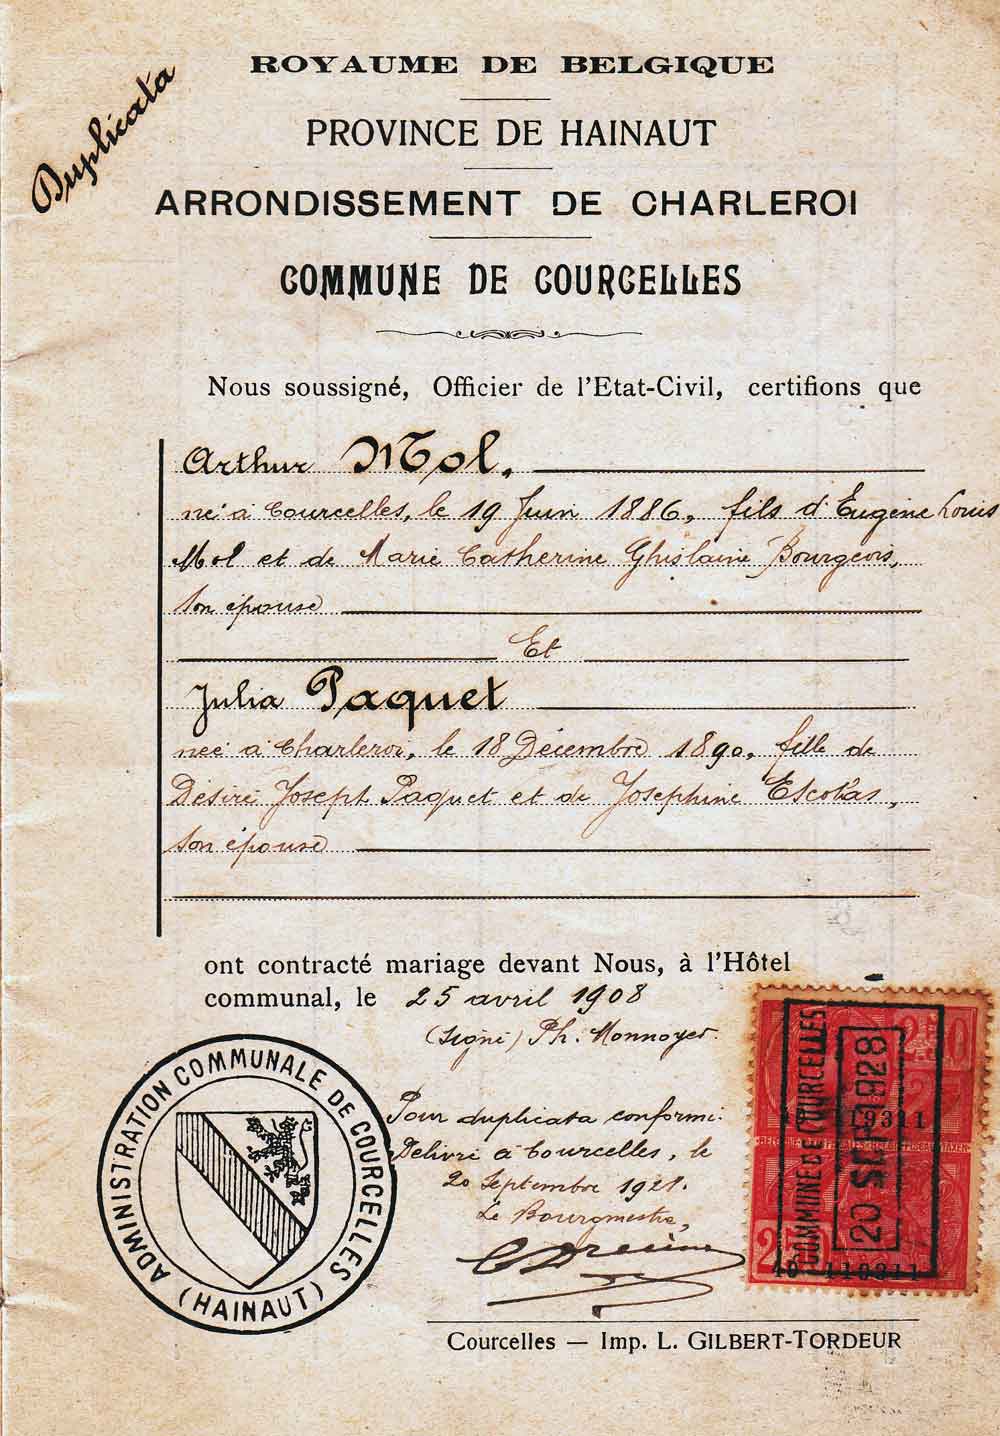 Duplicata
ROYAUME DE BELGIQUE
PROVINCE DE HAINAUT
ARRONDISSEMENT DE CHARLEROI
COMMUNE DE COURCELLES
Nous soussigné, Officier de l'Etat-Civil, certifions que
Arthur Mol,
né à Courcelles, le 19 Juin 1886, fils d'Eugène Louis
Mol et de Marie Catherine Ghislaine Bourgeois,
son épouse
Et
Julia Paquet
née à Charleroi, le 18 Décembre 1890, fille de
Désiré Joseph Paquet et de Joséphine Escolas,
son épouse
ont contracté mariage devant Nous, à l'Hôtel
communal, le 25 avril 1908
(Signé) Ph. Monnoyer.
Pour duplicata conforme.
Délivré à Courcelles, le
20 Septembre 1928.
Le Bourgmestre,
ADMINISTRATION COMMUNALE DE COURCELLES
(HAINAUT)
COMMUNE DE COURCELLES
20 SE 1928
Courcelles — Imp. L. GILBERT-TORDEUR